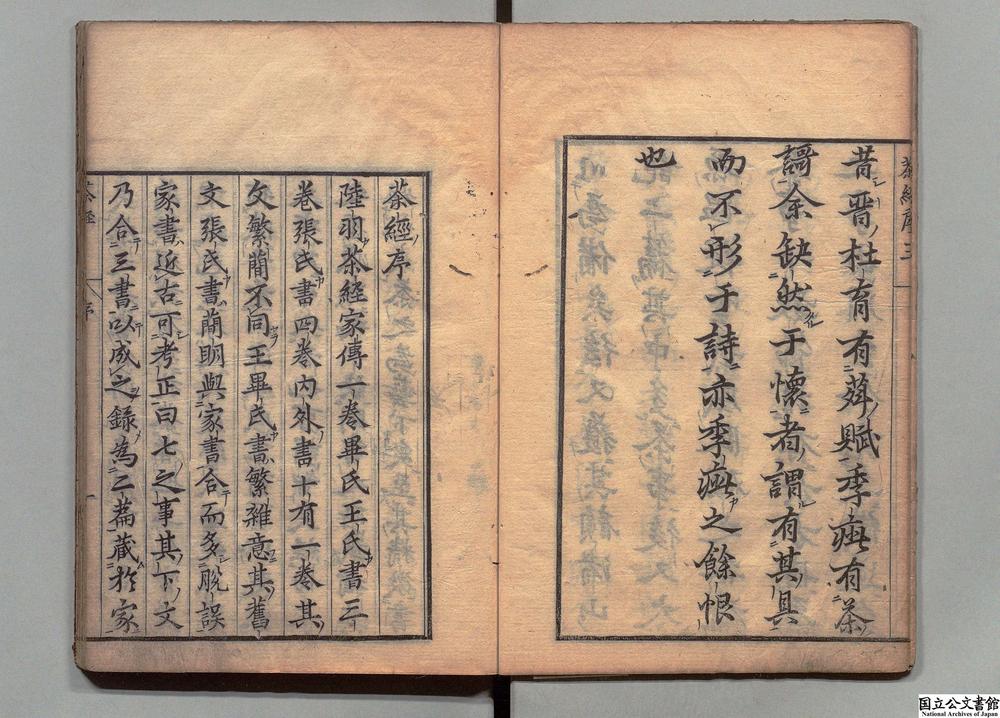 茶經序 三
昔晋杜育有荈賦季疵有茶
謌余缺然于懷者謂有其具
而不形于詩亦季疵之餘恨
也
茶經序
陸羽茶經家傳一卷畢氏王氏書三
卷張氏書四卷内外書十有一卷其
文繁蕳不同王畢氏書繁雑意其舊
文張氏書蕳明與家書合而多脫誤
家書近古可考正曰七之事其下文
乃合三書以成之錄為二篇蔵於家
茶經 序
国立公文書館
National Archives of Japan